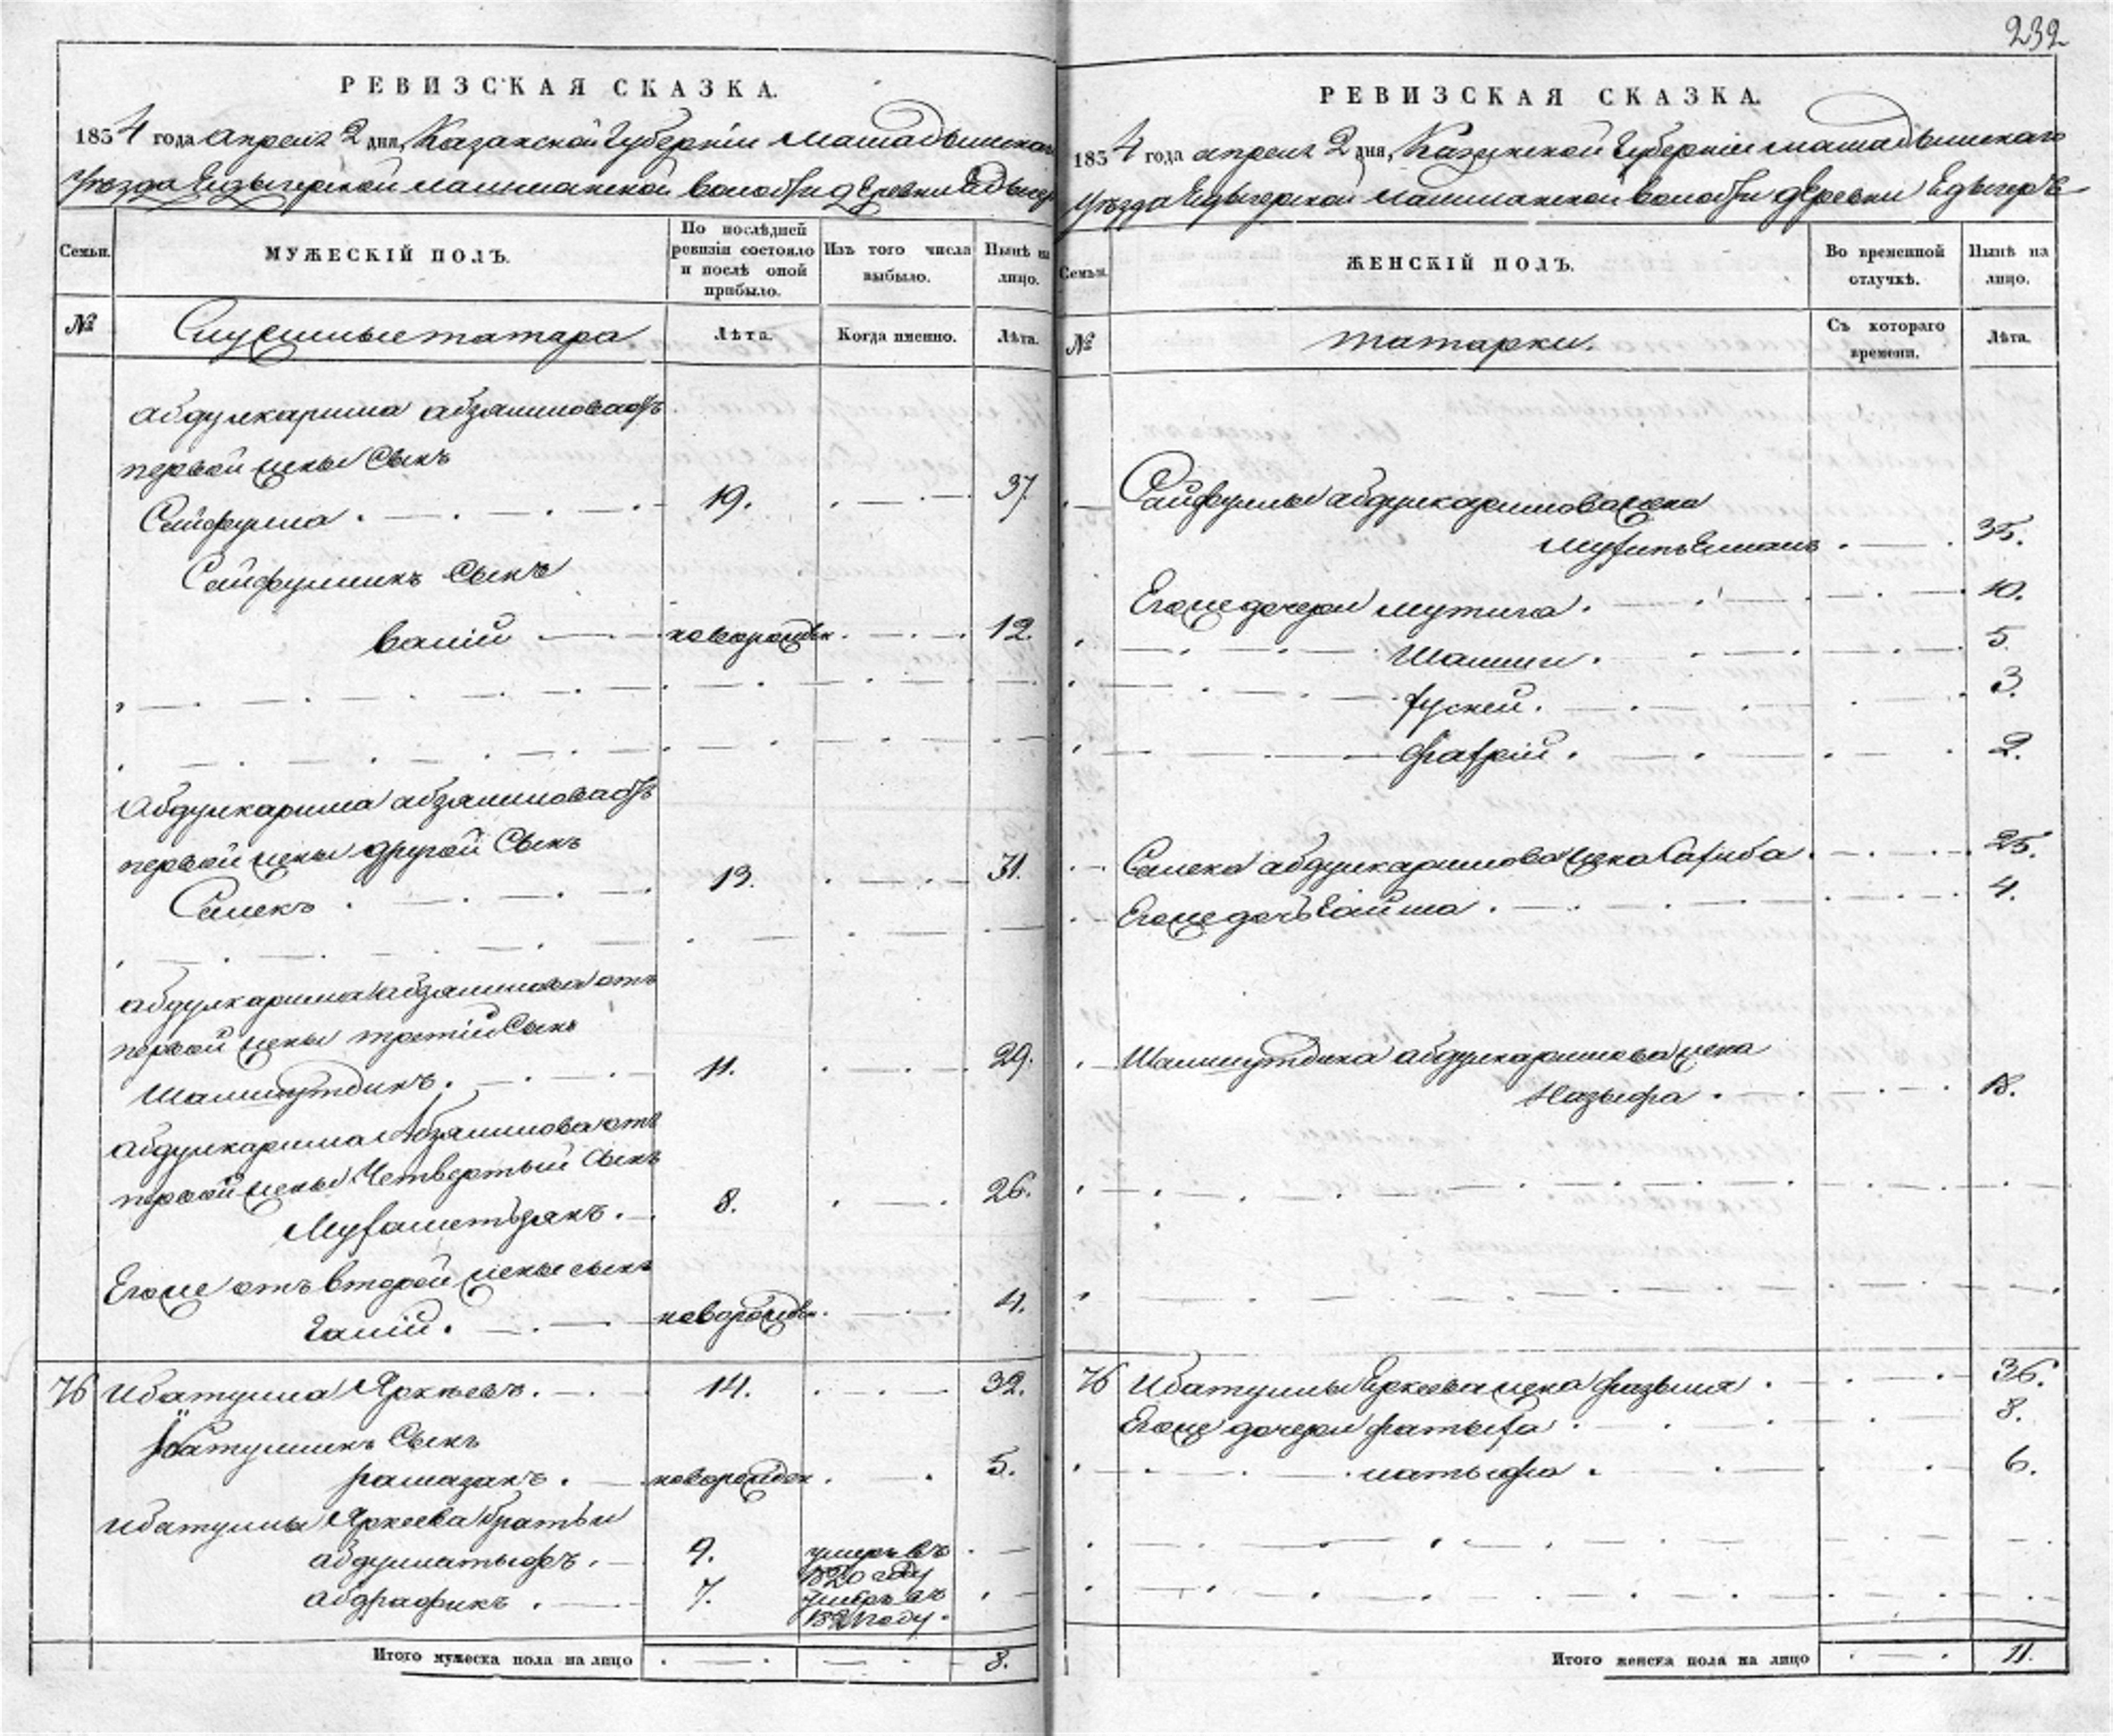 РЕВИЗСКАЯ СКАЗКА.
1834 года апреля 2 дня, Казанской Губернии Мамадышскаго
Уѣзда Едыгерской волости деревни Едыгеръ
Семьи.
МУЖЕСКІЙ ПОЛЪ.
По послѣдней ревизіи состояло и послѣ оной прибыло.
Изъ того числа выбыло.
Нынѣ на лицо.
№
Служилые татара
Лѣта.
Когда именно.
Лѣта.
Абдулкарима абзялиловаотъ
первой жены Сынъ
Сайфулла . 19. 37.
Сайфуллинъ Сынъ
валій новорожден. 12.
Абдулкарима абзялиловаотъ
первой жены другой Сынъ
Салекъ . 13. 31.
абдулкарима абзялилова отъ
первой жены третій Сынъ
Шамшутдинъ. 11. 29.
абдулкарима Абзялилова отъ
первой жены Четвертый Сынъ
Мухаметьзянъ. 8. 26.
Егоже отъ второй жены сынъ
Галій. новорожден. 4.
76 Ибатулла Яркѣевъ. 14. 32.
Ибатуллинъ Сынъ
рамазанъ. новорожден. 5.
Ибатуллы Яркеева братьи
абдуллатыфъ. 9. умеръ въ 1820 году
абдрафикъ. 7. умеръ въ году.
Итого мужеска пола на лицо 8.
232
РЕВИЗСКАЯ СКАЗКА.
1834 года апреля 2 дня, Казанской Губерніи мамадышскаго
Уѣзда Едыгерской волости деревни Едыгеръ
Семьи.
ЖЕНСКІЙ ПОЛЪ.
Во временной отлучкѣ.
Нынѣ на лицо.
№
татарки.
Съ котораго времени.
Лѣта.
Сайфуллы абдулкаримова жена
35.
Егоже дочери мутига. 10.
Шамси. 5.
хусней. 3.
фахрій. 2.
Салека абдулкаримова жена Сахиба. 25.
Егоже дочь Гайша. 4.
Шамшутдина абдулкаримова жена
Назыфа. 18.
76 Ибатуллы Еркеева жена фазыля. 36.
Егоже дочери фатыха 8.
латыфа. 6.
Итого женска пола на лицо 11.